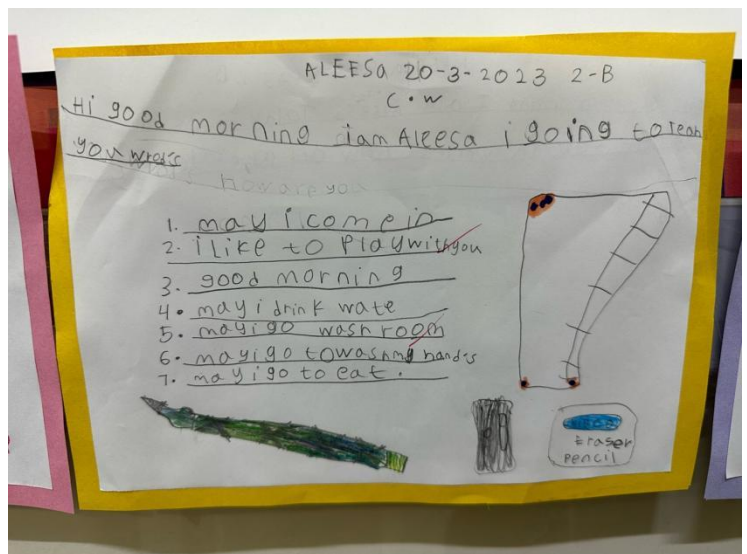 ALEESA 20-3-2023 2-B
C.W
Hi good morning iam Aleesa i going to teah
you wrods
how are you
1. may i come in
2. i like to Play with you
3. good morning
4. may i drink wate
5. may i go wash room
6. may i go to wash my hands
7. may i go to eat.
Eraser
Pencil